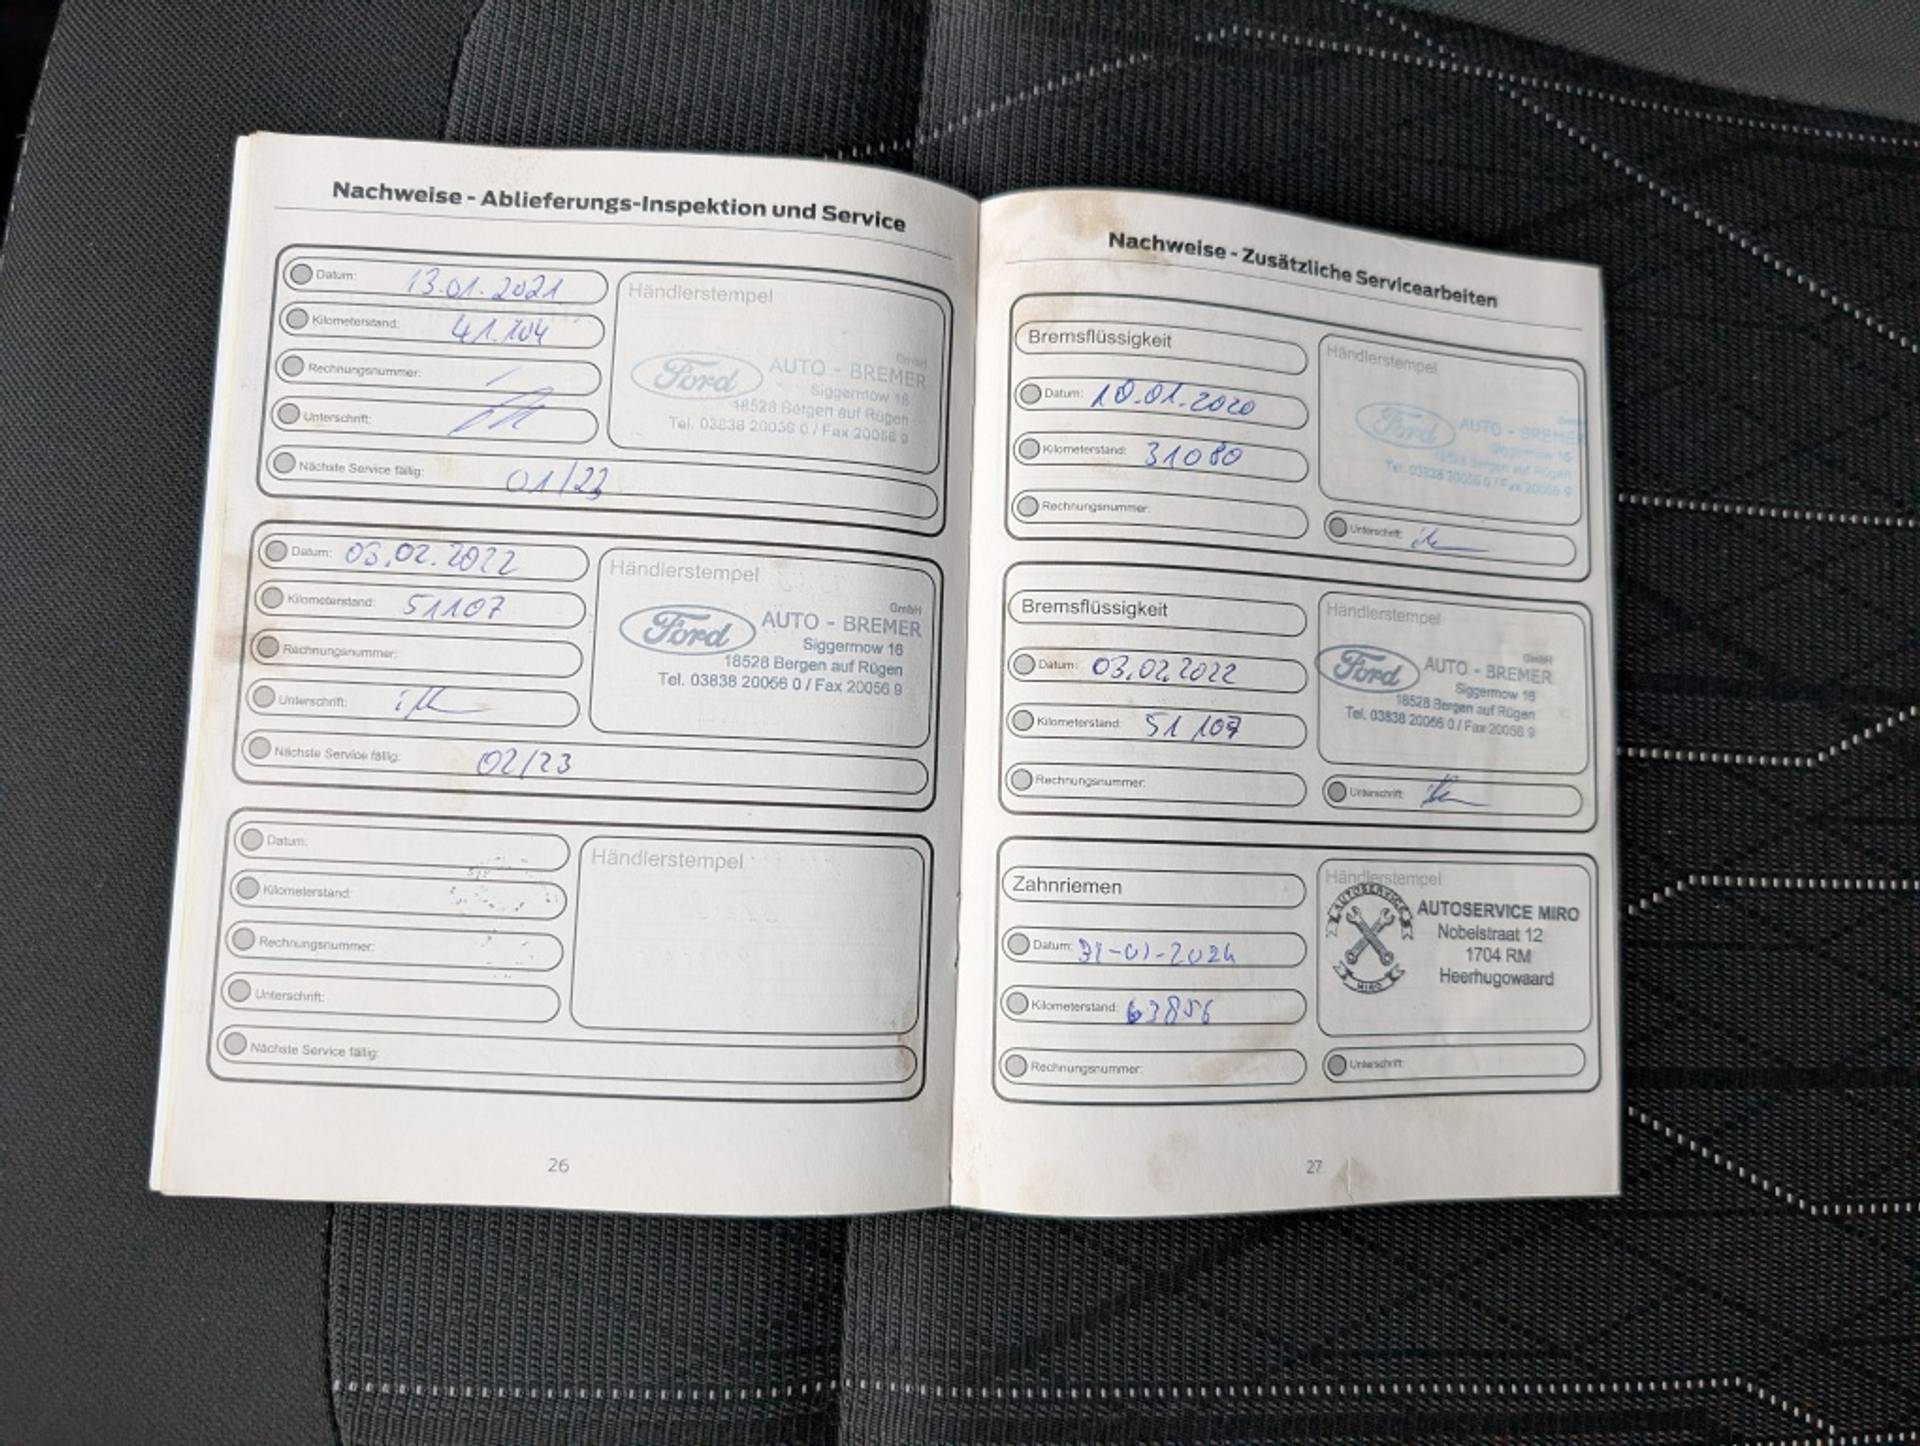 Nachweise - Ablieferungs-Inspektion und Service
Datum: 13.01.2021
Kilometerstand: 41.104
Rechnungsnummer:
Unterschrift:
Nächste Service fällig: 01/23
Händlerstempel
GmbH
Ford AUTO - BREMER
Siggermow 16
18528 Bergen auf Rügen
Tel. 03838 20056 0 / Fax 20056 9
Datum: 03.02.2022
Kilometerstand: 51107
Rechnungsnummer:
Unterschrift:
Nächste Service fällig: 02/23
Händlerstempel
GmbH
Ford AUTO - BREMER
Siggermow 16
18528 Bergen auf Rügen
Tel. 03838 20056 0 / Fax 20056 9
Datum:
Kilometerstand:
Rechnungsnummer:
Unterschrift:
Nächste Service fällig:
Händlerstempel
26
Nachweise - Zusätzliche Servicearbeiten
Bremsflüssigkeit
Datum: 10.01.2020
Kilometerstand: 31080
Rechnungsnummer:
Händlerstempel
Ford AUTO - BREMER
Siggermow 16
18528 Bergen auf Rügen
Tel. 03838 20056 0 / Fax 20056 9
Unterschrift:
Bremsflüssigkeit
Datum: 03.02.2022
Kilometerstand: 51 107
Rechnungsnummer:
Händlerstempel
GmbH
Ford AUTO - BREMER
Siggermow 16
18528 Bergen auf Rügen
Tel. 03838 20056 0 / Fax 20056 9
Unterschrift:
Zahnriemen
Datum: 31-01-2024
Kilometerstand: 63856
Rechnungsnummer:
Händlerstempel
AUTOSERVICE
MIRO
AUTOSERVICE MIRO
Nobelstraat 12
1704 RM
Heerhugowaard
Unterschrift:
27